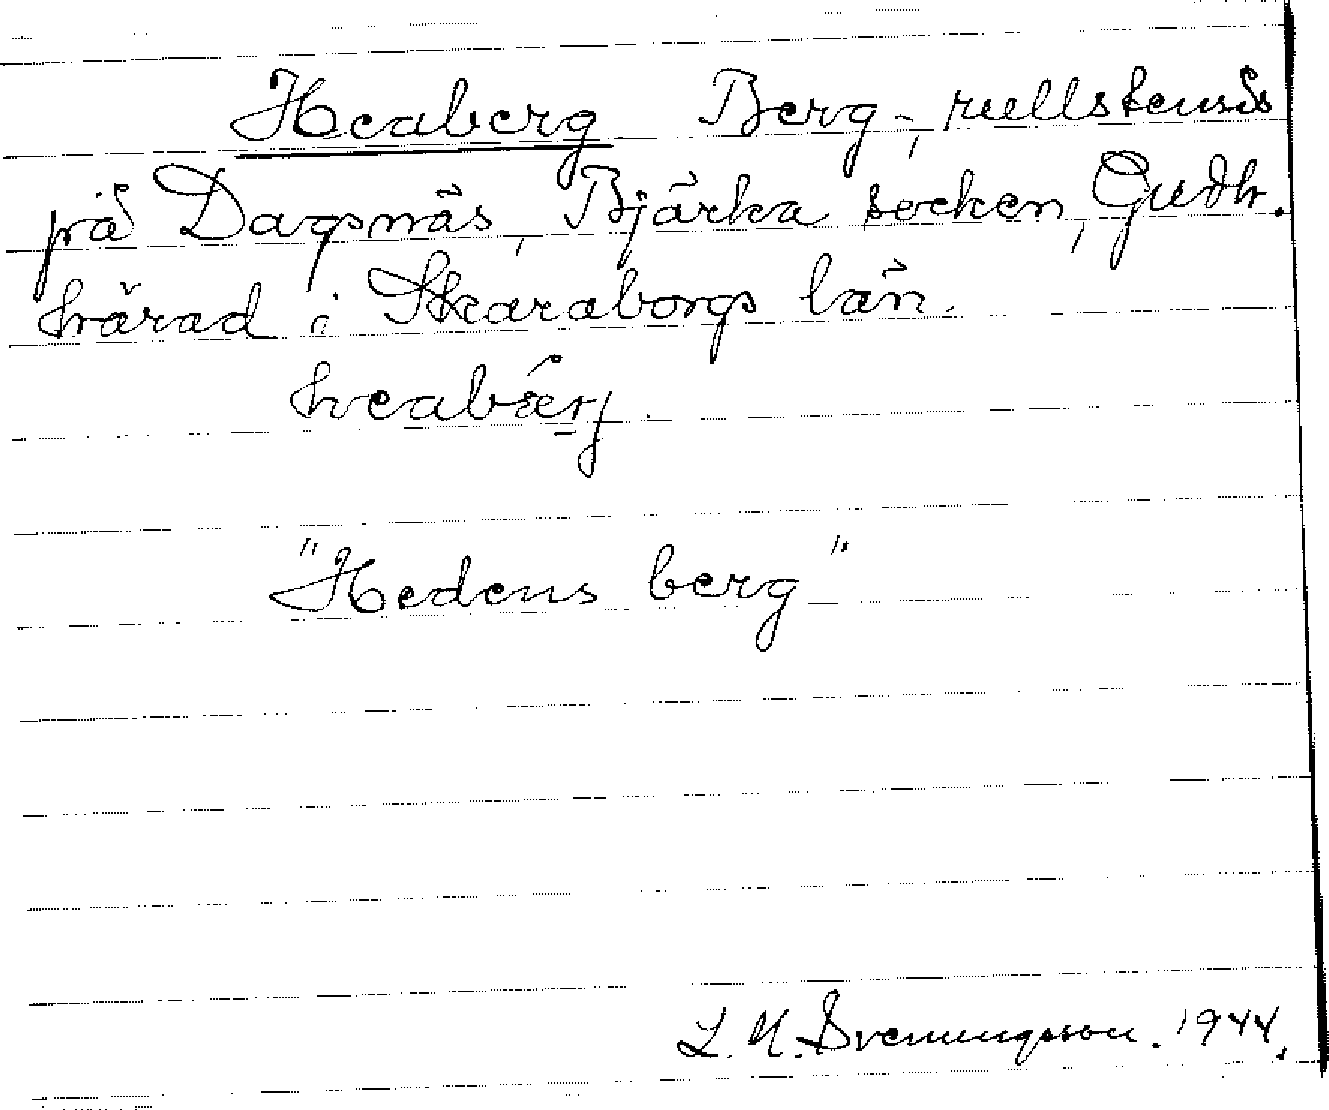 Heaberg Berg, rullstensås
på Dagsnäs, Bjärka socken, Gudh.
härad i Skaraborgs län.
heabärj.
"Hedens berg"
L. M. Svenungsson. 1944.